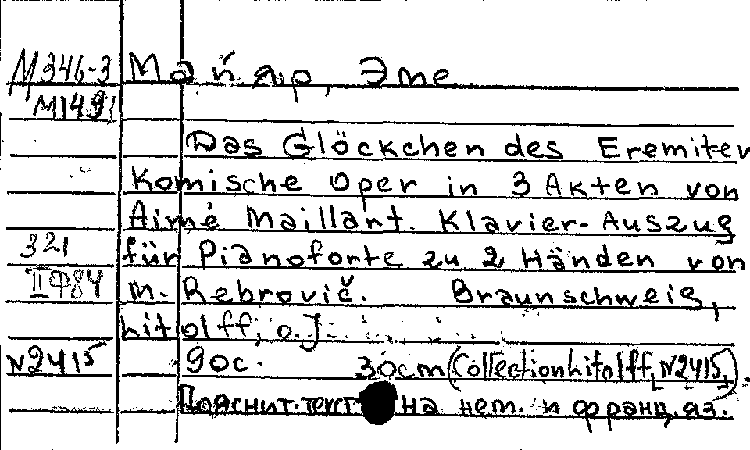 М346-3 Майяр, Эме
М1491
Das Glöckchen des Eremiten
Komische Oper in 3 Akten von
Aimé Maillart. Klavier-Auszug
321 für Pianoforte zu 2 Händen von
IIФ84 M. Rebrovič. Braunschweig,
Litolff, o.J.
N2415 90c. 30cm (Collection Litolff, N2415).
Пояснит. текст на нем. и франц. яз.